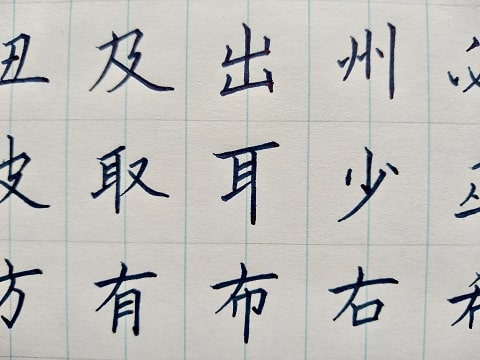 丑及出州必
皮取耳少
方有布右